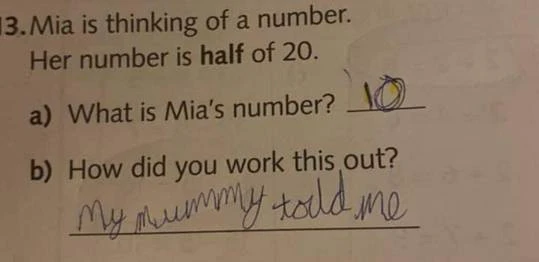 13. Mia is thinking of a number.
Her number is half of 20.
a) What is Mia's number? 10
b) How did you work this out?
My mummy tould me